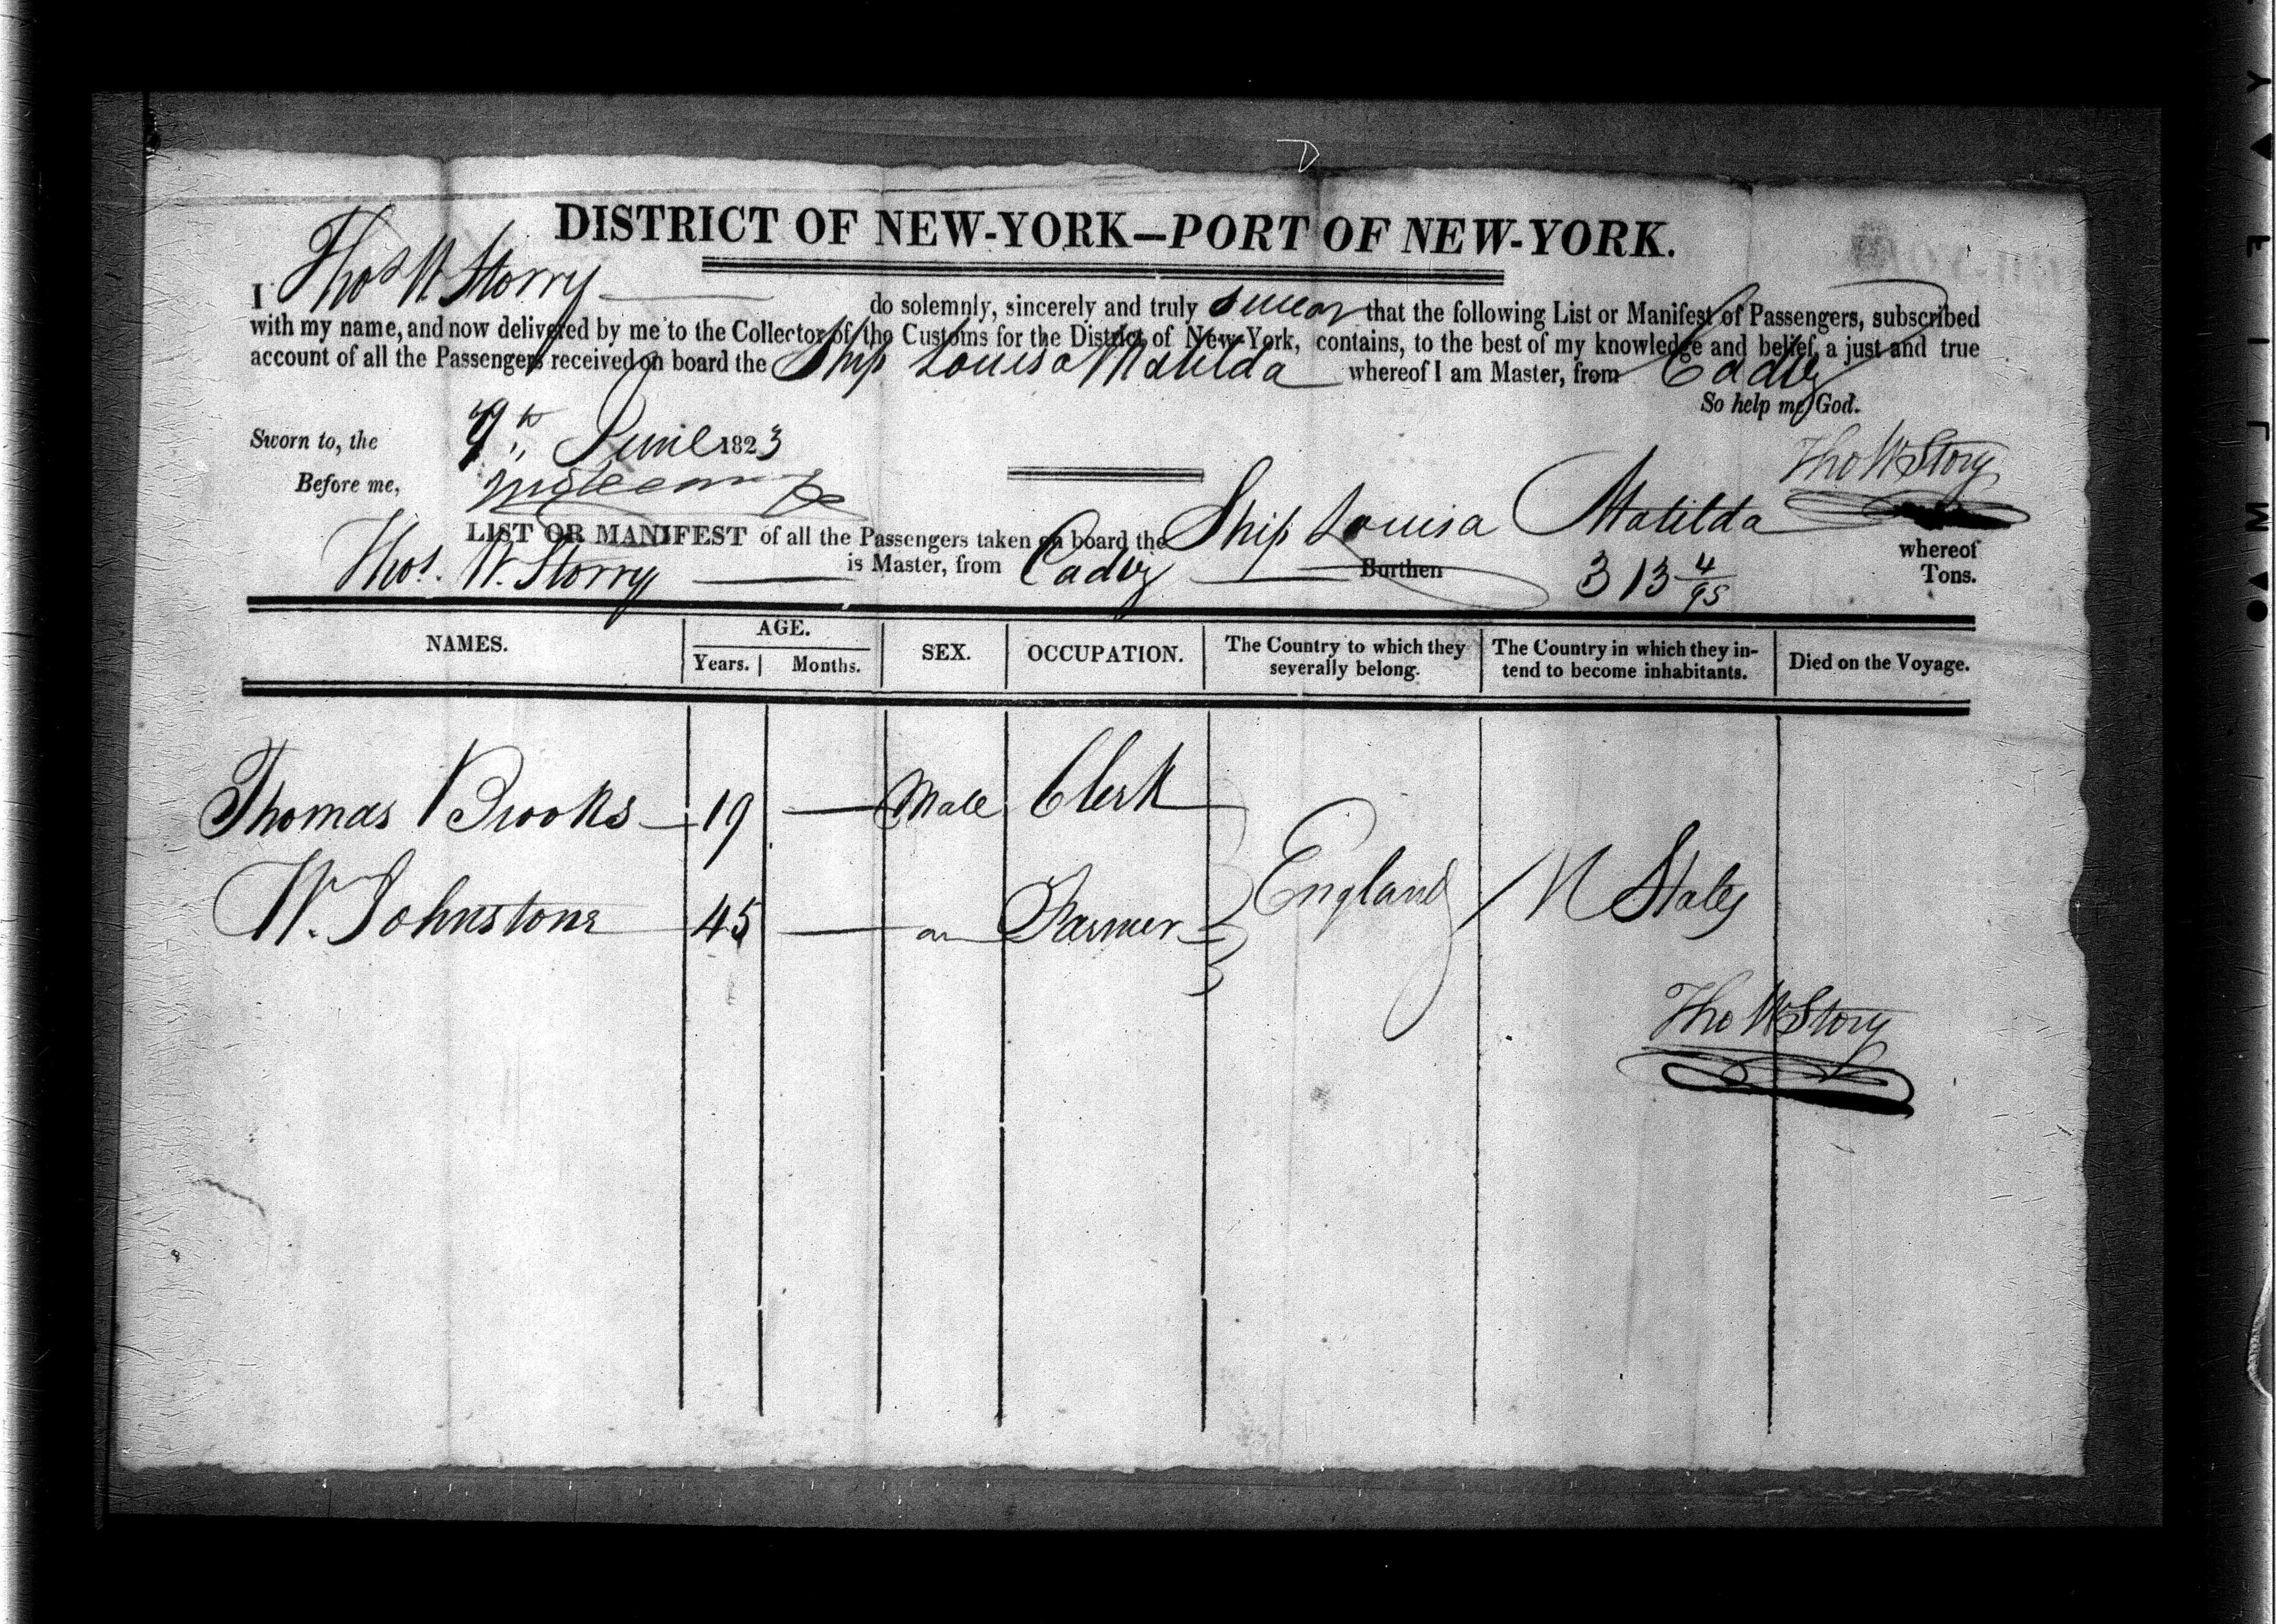 DISTRICT OF NEW-YORK—PORT OF NEW-YORK.
I Thos W Storry do solemnly, sincerely and truly swear that the following List or Manifest of Passengers, subscribed
with my name, and now delivered by me to the Collector of the Customs for the District of New-York, contains, to the best of my knowledge and belief, a just and true
account of all the Passengers received on board the Ship Louisa Matilda whereof I am Master, from Cadiz
So help me God.
Sworn to, the 9th June 1823
Before me,
Tho W Story
LIST OR MANIFEST of all the Passengers taken on board the Ship Louisa Matilda whereof
Thos. W. Storry is Master, from Cadiz Burthen 313 4/95 Tons.
NAMES. AGE. Years. Months. SEX. OCCUPATION. The Country to which they severally belong. The Country in which they intend to become inhabitants. Died on the Voyage.
Thomas Brooks 19 — Male Clerk
England U States
W. Johnstone 45 — Farmer
Tho W Story
FILMED BY